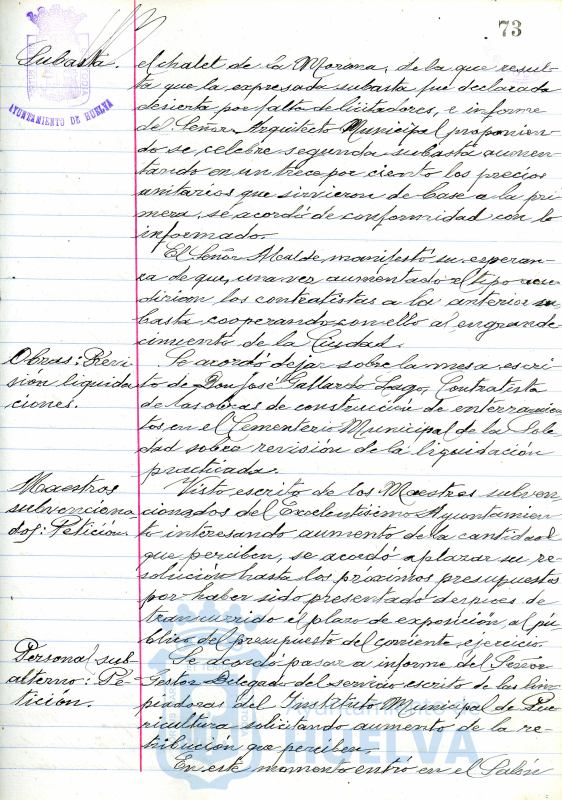 73
AYUNTAMIENTO DE HUELVA
Subasta.
el chalet de La Morena, de la que resul-
ta que la expresada subasta fué declarada
desierta por falta de licitadores, e informe
del Señor Arquitecto Municipal proponien-
do se celebre segunda subasta aumen-
tando en un trece por ciento los precios
unitarios que sirvieron de base a la pri-
mera, se acordó de conformidad con lo
informado.
El Señor Alcalde manifestó su esperan-
za de que, una vez aumentado el tipo acu-
dirian los contratistas a la anterior su-
basta cooperando con ello al engrande-
cimiento de la Ciudad.
Obras: Revi-
sión liquida-
ciones.
Se acordó dejar sobre la mesa escri-
to de Don José Gallardo Lago, Contratista
de las obras de construcción de enterramien-
tos en el Cementerio Municipal de la Sole-
dad sobre revisión de la liquidación
practicada.
Maestros
subvenciona-
dos: Petición
Visto escrito de los Maestros subven-
cionados del Excelentísimo Ayuntamien-
to interesando aumento de la cantidad
que perciben, se acordó aplazar su re-
solución hasta los próximos presupuestos
por haber sido presentado despues de
transcurrido el plazo de exposición al pú-
blico del presupuesto del corriente ejercicio.
Personal sub-
alterno: Pe-
tición.
Se acordó pasar a informe del Señor
Gestor Delegado del servicio escrito de las lim-
piadoras del Instituto Municipal de Pue-
ricultura solicitando aumento de la re-
tribución que perciben.
En este momento entró en el Salón
HUELVA